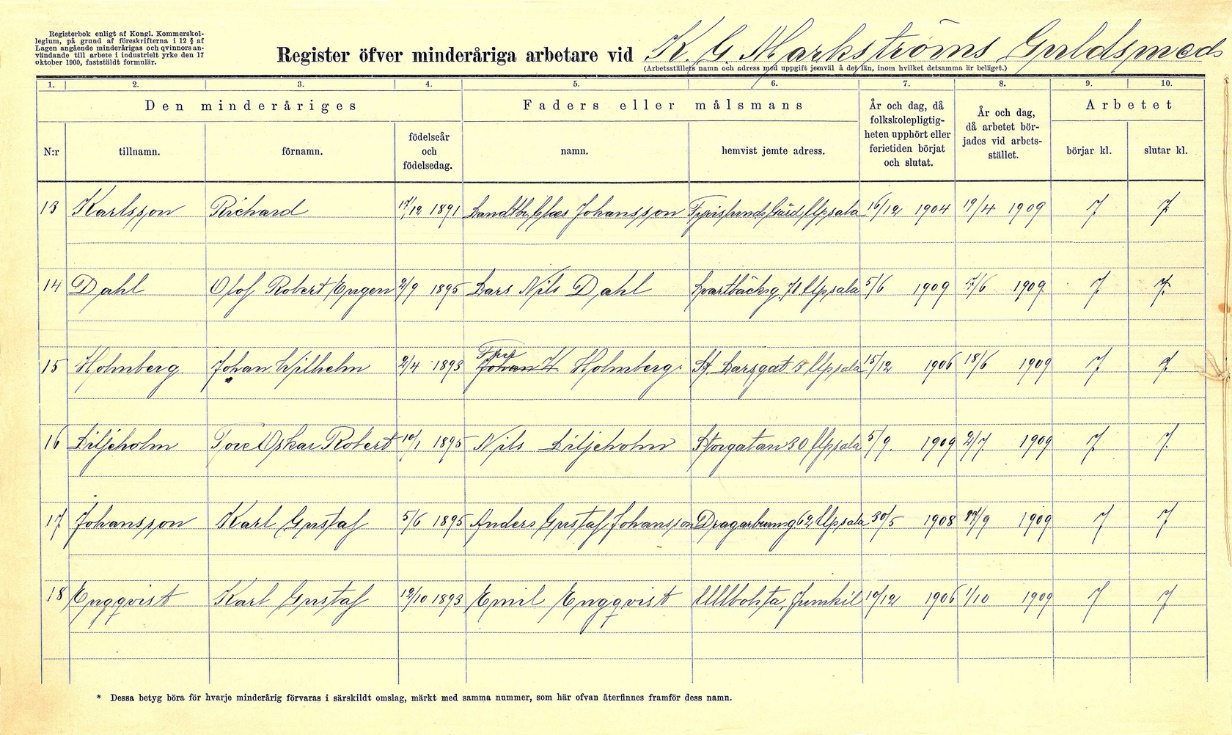 Registerbok enligt af Kongl. Kommerskol-
legium, på grund af föreskrifterna i 12 § af
Lagen angående minderårigas och qvinnors an-
vändande till arbete i industrielt yrke den 17
oktober 1900, fastställdt formulär.
Register öfver minderåriga arbetare vid K. G. Markströms Guldsmeds
(Arbetsställets namn och adress med uppgift jemväl å det län, inom hvilket detsamma är beläget.)
1. 2. 3. 4. 5. 6. 7. 8. 9. 10.
Den minderåriges
Faders eller målsmans
År och dag, då folkskolepligtig-heten upphört eller ferietiden börjat och slutat.
År och dag, då arbetet bör-jades vid arbets-stället.
Arbetet
N:r tillnamn. förnamn. födelseår och födelsedag. namn. hemvist jemte adress. börjar kl. slutar kl.
13 Karlsson Richard 17/12 1891 Claes Johansson Upsala 16/12 1904 19/4 1909 7 7
14 Dahl Olof Robert Eugen 2/9 1895 Lars Nils Dahl Svartbäcksg. 71 Upsala 5/6 1909 1909 7 7.
15 Holmberg Johan Wilhelm 2/4 1893 Fru Johan Holmberg St. Larsgat 8 Upsala 15/12 1906 18/6 1909 7 7
16 Liljeholm Tore Oskar Robert 10/1 1895 Nils Liljeholm Storgatan 30 Upsala 5/9. 1909 2/7. 1909 7 7
17 Johansson Karl Gustaf 5/6 1895 Anders Gustaf Johansson Dragarbrunng 62, Upsala 30/5 1908 27/9 1909 7 7
18 Engqvist Karl Gustaf 12/10 1893 Emil Engqvist Ullbolsta, Jumkil 10/12 1906 1/10 1909 7 7
* Dessa betyg böra för hvarje minderårig förvaras i särskildt omslag, märkt med samma nummer, som här ofvan återfinnes framför dess namn.